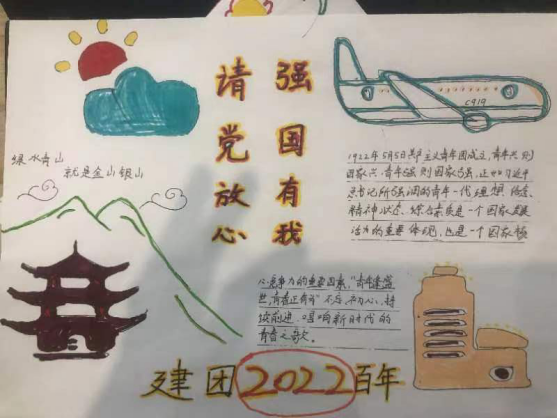 强国有我
请党放心
C919
绿水青山
就是金山银山
1922年5月5日共产主义青年团成立,青年兴则
国家兴,青年强则国家强,正如习近平
总书记所强调的青年一代理想信念
精神状态、综合素质是一个国家发展
活力的重要体现,也是一个国家核
心竞争力的重要因素,"青年
"不忘初心,持
续前进 唱响新时代的
青春之歌。
建团2022百年